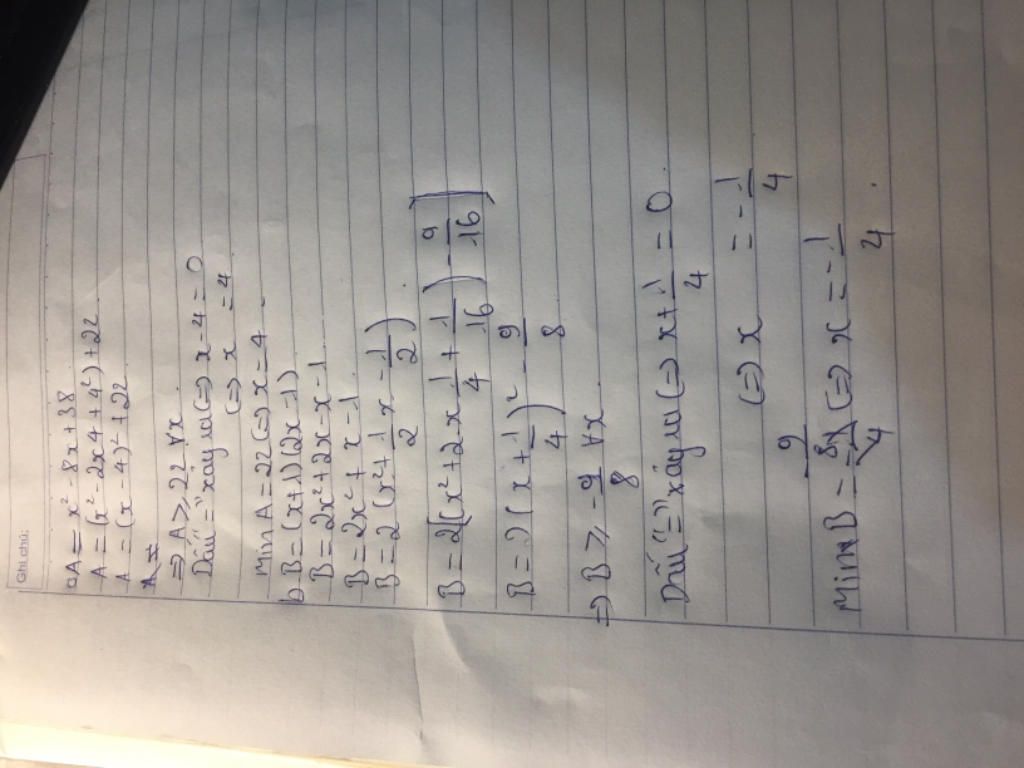 Ghi chú:
a A = x² - 8x + 38
A = (x² - 2x4 + 4²) + 22
A = (x - 4)² + 22
A =
=> A ≥ 22 ∀x
Dấu "=" xảy ra (=> x - 4 = 0
(=> x = 4
Min A = 22 (=> x = 4
b B = (x+1)(2x-1)
B = 2x² + 2x - x - 1
B = 2x² + x - 1
B = 2(x² + 1/2 x - 1/2)
B = 2[(x² + 2x 1/4 + 1/16) - 9/16]
B = 2(x + 1/4)² - 9/8
=> B ≥ -9/8 ∀x
Dấu "=" xảy ra (=> x + 1/4 = 0
(=> x = -1/4
Min B = -9/8 (=> x = -1/4